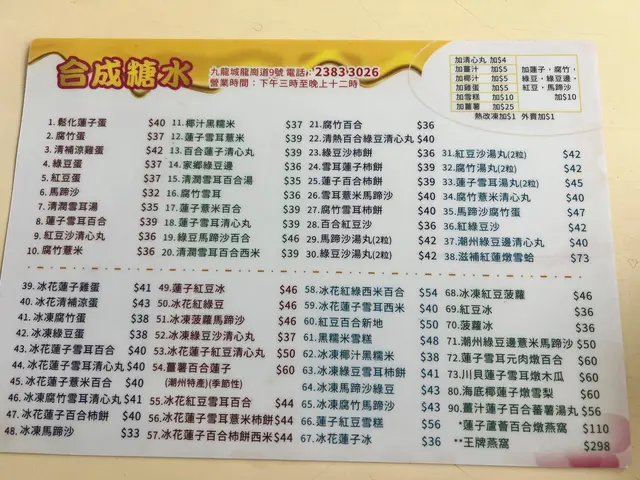 合成糖水
九龍城龍崗道9號 電話：2383 3026
營業時間：下午三時至晚上十二時
加清心丸 加$4
加薑汁 加$5
加椰汁 加$5
加雞蛋 加$5
加雪糕 加$10
加薑薯 加$25
加蓮子﹑腐竹﹑
綠豆﹑綠豆邊﹑
紅豆﹑馬蹄沙
加$10
熱改凍加$1 外賣加$1
1. 鬆化蓮子蛋 $40
2. 腐竹蛋 $37
3. 清補涼雞蛋 $42
4. 綠豆蛋 $37
5. 紅豆蛋 $37
6. 馬蹄沙 $32
7. 清潤雪耳湯 $35
8. 蓮子雪耳百合 $39
9. 紅豆沙清心丸 $36
10. 腐竹薏米 $36
11. 椰汁黑糯米 $37
12. 蓮子雪耳薏米 $39
13. 百合蓮子清心丸 $39
14. 家鄉綠豆邊 $36
15. 清潤雪耳百合湯 $39
16. 腐竹雪耳 $39
17. 蓮子薏米百合 $39
18. 蓮子雪耳清心丸 $39
19. 綠豆馬蹄沙百合 $46
20. 清潤雪耳百合西米 $39
21. 腐竹百合 $36
22. 清熱百合綠豆清心丸 $40
23. 綠豆沙柿餅 $36
24. 雪耳蓮子柿餅 $39
25. 蓮子百合柿餅 $39
26. 雪耳薏米柿餅 $40
27. 蓮子雪耳柿餅 $39
28. 百合紅豆沙 $36
29. 馬蹄沙湯丸(2粒) $42
30. 綠豆沙湯丸(2粒) $42
31. 紅豆沙湯丸(2粒) $42
32. 腐竹湯丸(2粒) $42
33. 蓮子雪耳湯丸(2粒) $45
34. 腐竹薏米清心丸 $40
35. 馬蹄沙腐竹蛋 $47
36. 紅綠豆沙 $42
37. 潮州綠豆邊清心丸 $40
38. 滋補紅蓮燉雪蛤 $73
39. 冰花蓮子雞蛋 $41
40. 冰花清補涼蛋 $43
41. 冰凍腐竹蛋 $38
42. 冰凍綠豆蛋 $38
43. 冰花蓮子雪耳百合 $40
44. 冰花蓮子雪耳清心丸 $40
45. 冰花蓮子薏米百合 $40
46. 冰凍腐竹雪耳清心丸 $41
47. 冰花蓮子百合柿餅 $40
48. 冰凍馬蹄沙 $33
49. 蓮子紅豆冰 $46
50. 冰花紅綠豆 $46
51. 冰凍菠蘿馬蹄沙 $43
52. 冰凍綠豆沙清心丸 $38
53. 冰花蓮子紅豆清心丸 $50
54. 薑薯百合蓮子 $60
(潮州特產)(季節性)
55. 冰花蓮子百合紅豆 $44
56. 冰花蓮子雪耳薏米柿餅 $44
57. 冰花蓮子百合柿餅西米 $44
58. 冰花紅綠西米百合 $54
59. 冰花蓮子雪耳西米 $40
60. 紅豆百合新地 $50
61. 黑糯米雪糕 $48
62. 冰凍椰汁黑糯米 $38
63. 冰凍綠豆雪耳柿餅 $41
64. 冰凍馬蹄沙綠豆 $43
65. 冰凍腐竹馬蹄沙 $43
66. 蓮子紅豆雪糕 $46
67. 冰花蓮子冰 $36
68. 冰凍紅豆菠蘿 $46
69. 紅豆冰 $36
70. 菠蘿冰 $36
71. 潮州綠豆邊薏米馬蹄沙 $50
72. 蓮子雪耳元肉燉百合 $60
73. 川貝蓮子雪耳燉木瓜 $60
80. 海底椰蓮子燉雪梨 $60
90. 薑汁蓮子百合蕃薯湯丸 $56
*蓮子蘆薈百合燉燕窩 $110
**王牌燕窩 $298